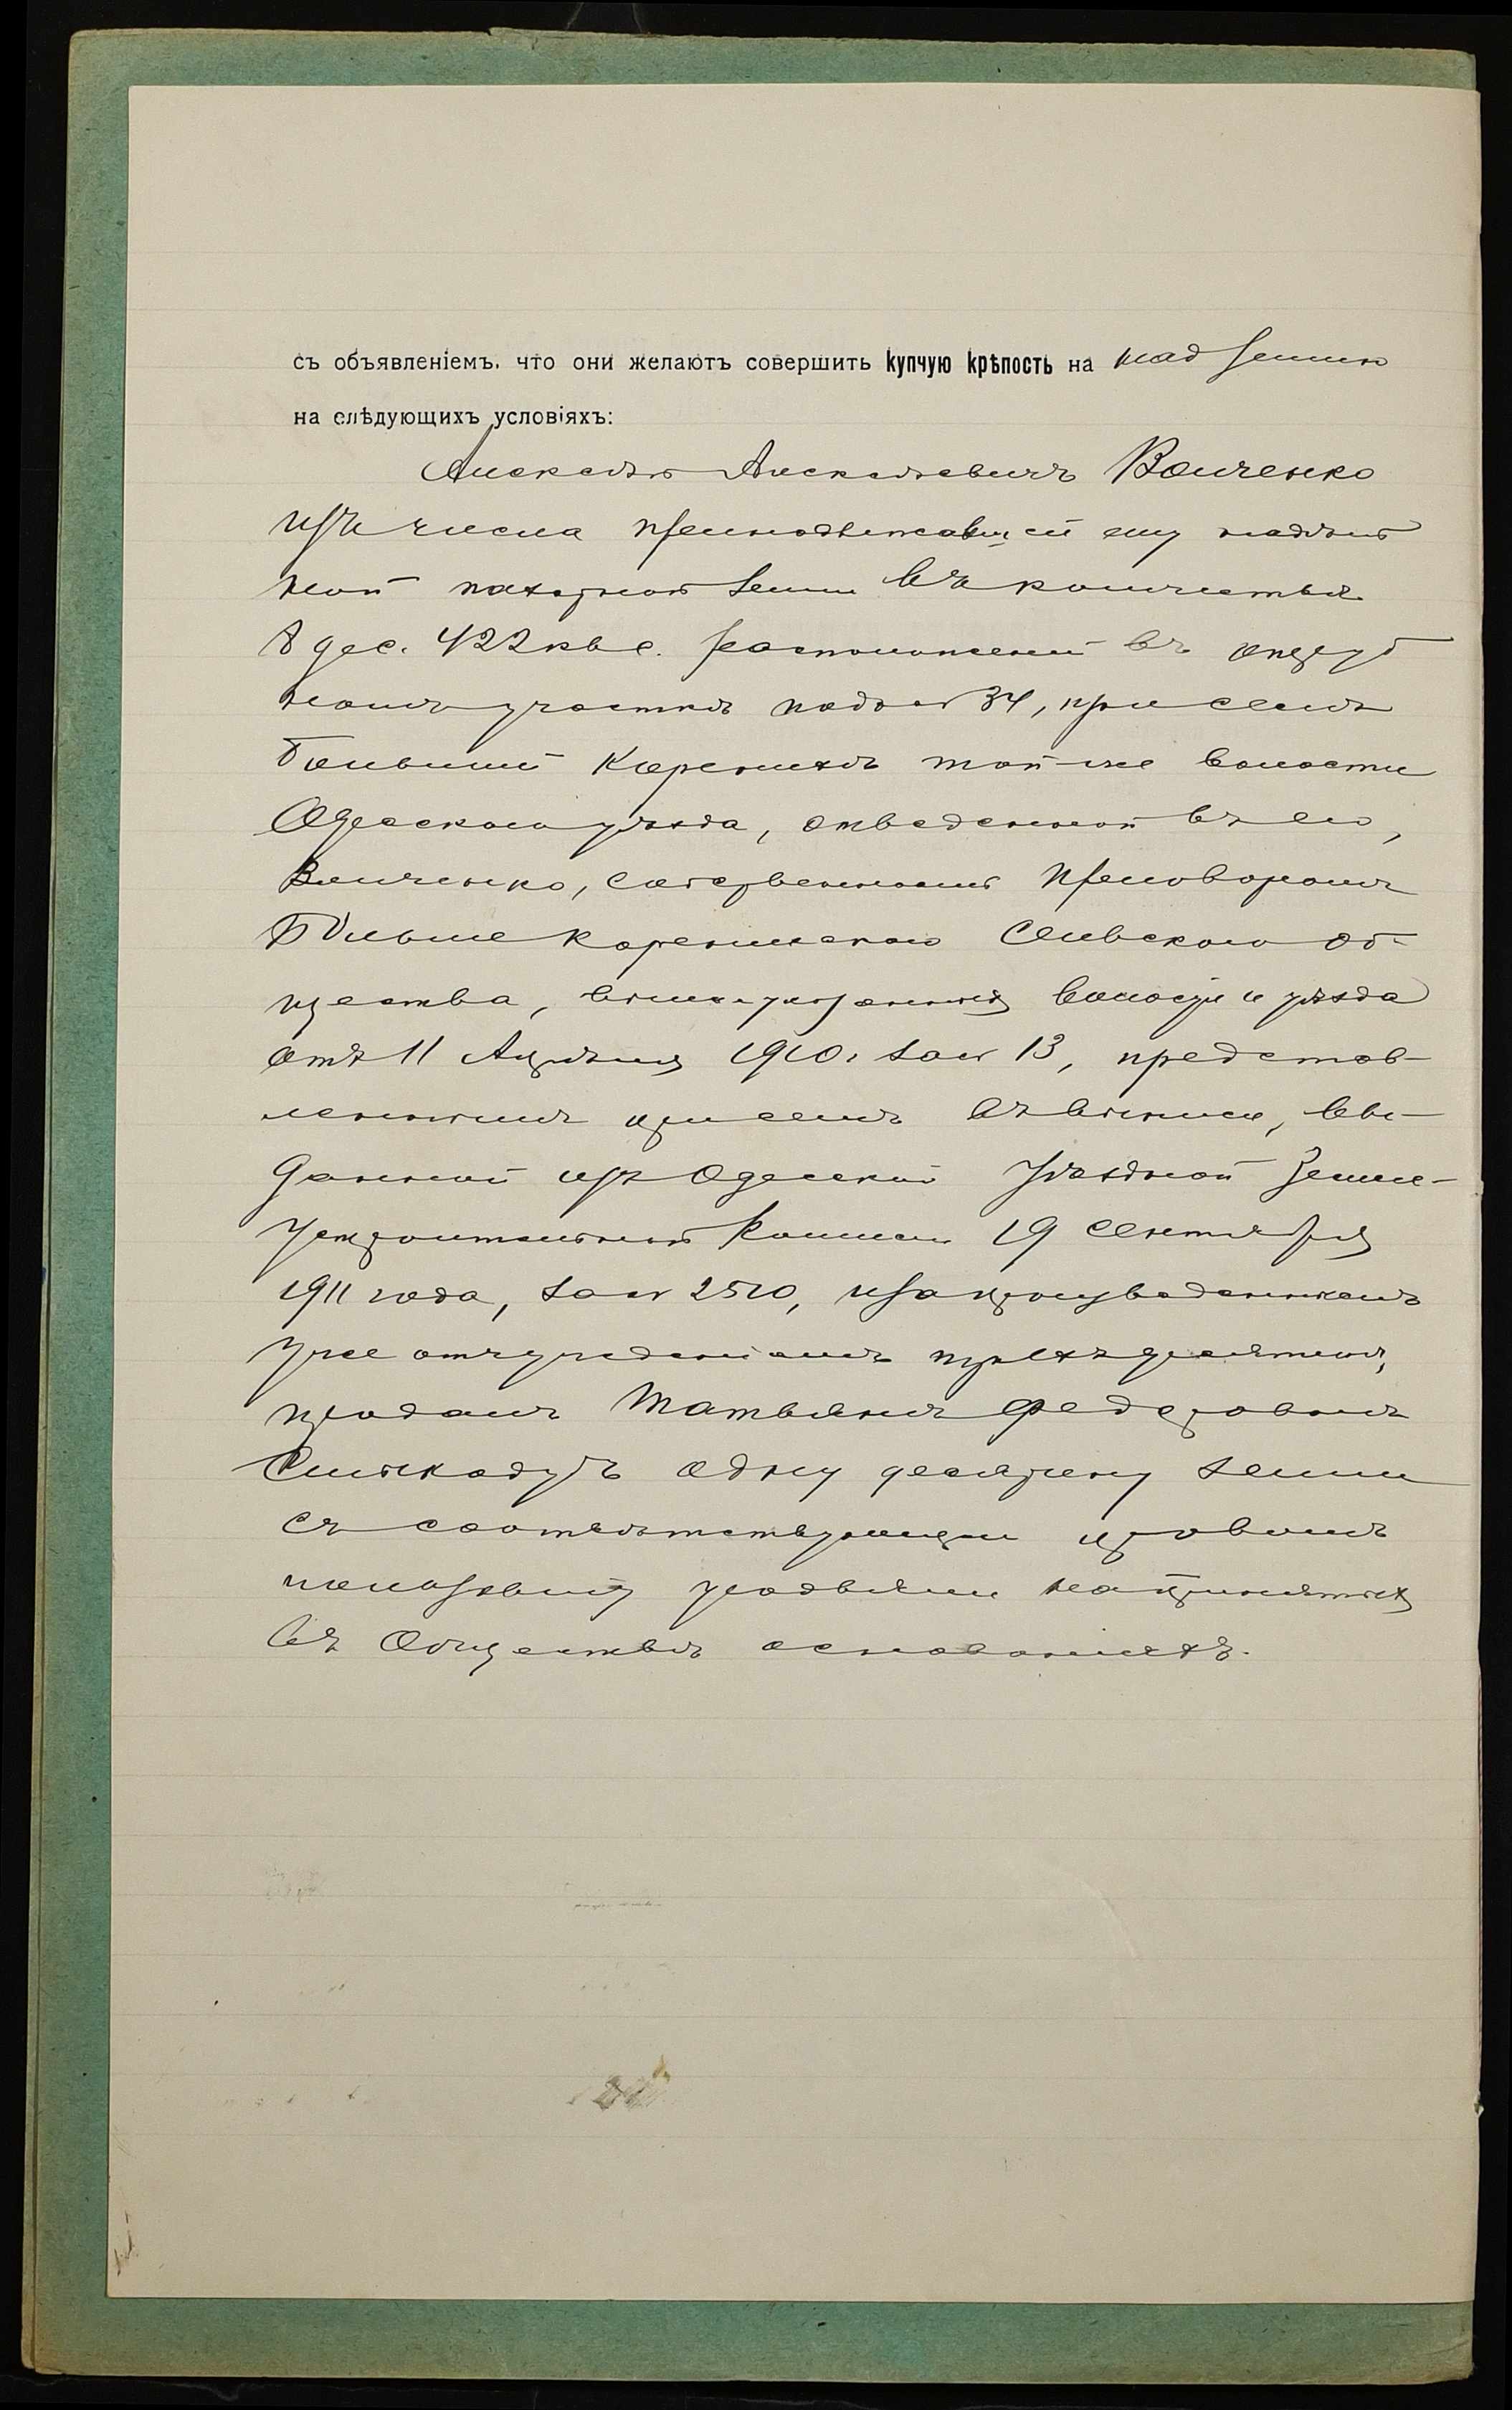 съ объявленіемъ, что они желаютъ совершить купчую крѣпость на над. землю
на слѣдующихъ условіяхъ:
Алексѣй Алексѣевичъ Волченко
изъ числа принадлежавшей ему надѣль
ной пахатной земли въ количествѣ
8 дес. 422 кв. с. расположенной въ отруб
номъ участкѣ подъ № 34, при селѣ
Большой Коренихѣ той-же волости
Одесскаго уѣзда, отведенной въ его,
Волченко, собственность приговоромъ
Больше Коренихскаго Сельскаго об-
щества, вышеуказанныхъ волости и уѣзда
отъ 11 Апрѣля 1910 г. за № 13, представ-
леннымъ при семъ въ выписи, вы-
данной изъ Одесской Уѣздной Земле-
устроительной Комисіи 19 Сентября
1911 года, за № 2510, и за произведеннымъ
уже отчужденіемъ трехъ десятинъ,
продалъ Татьянѣ Федоровнѣ
одну десятину земли
съ соотвѣтствующимъ правомъ
пользованія угодьями на принятыхъ
въ Обществѣ основаніяхъ.